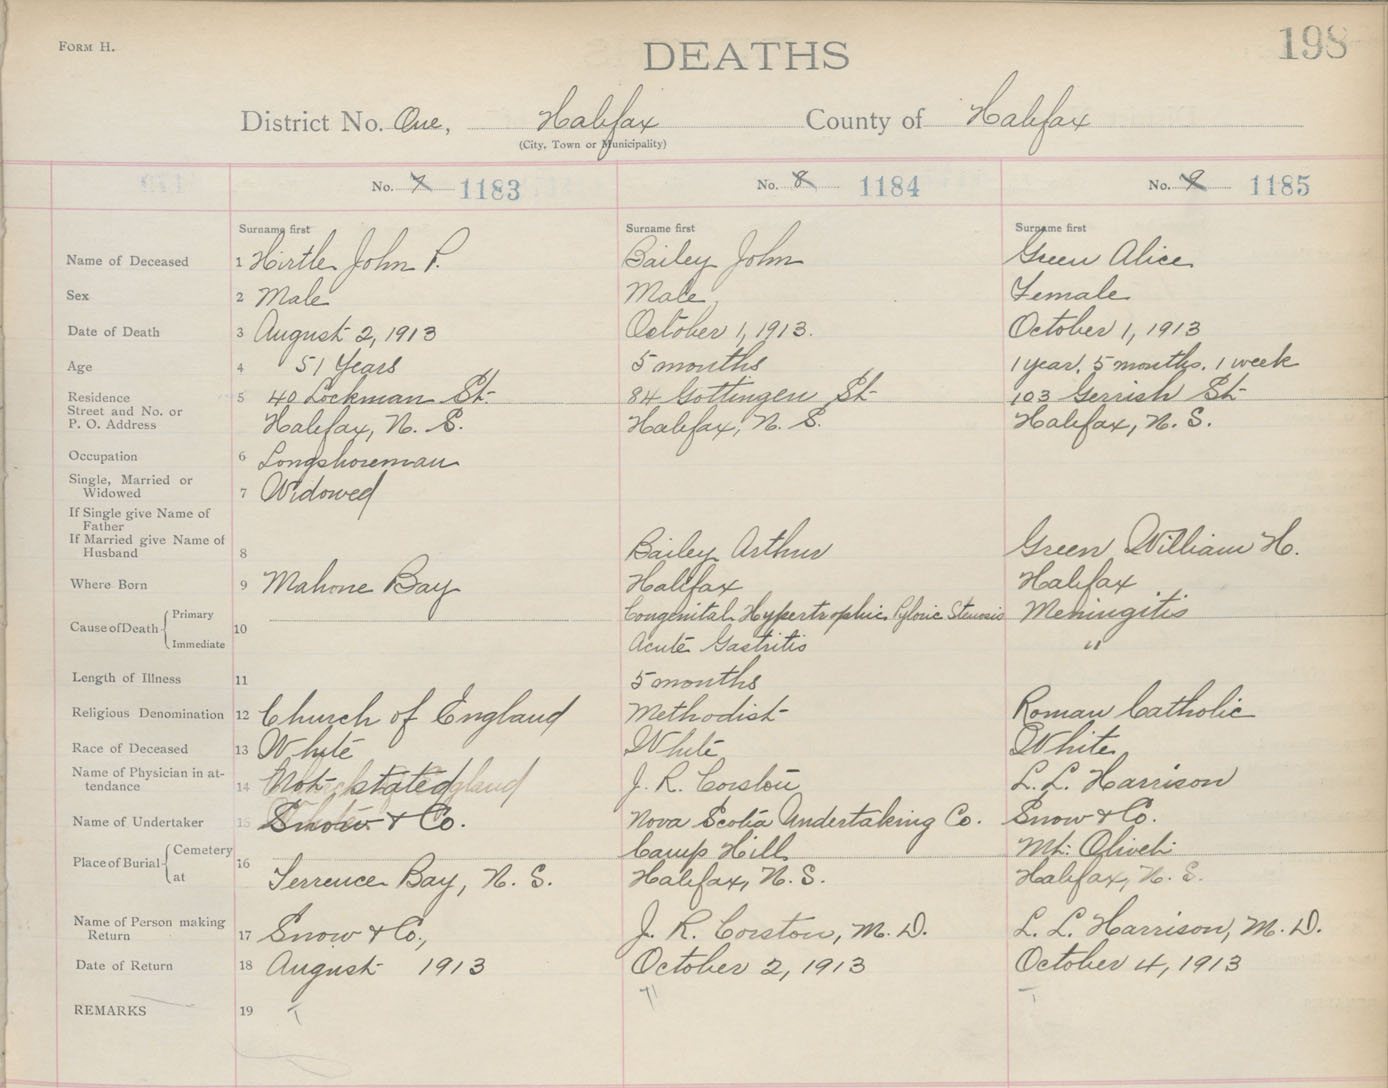 FORM H.
DEATHS
198
District No. One, Halifax County of Halifax
(City, Town or Municipality)
No. 7 1183 No. 8 1184 No. 9 1185
Surname first Surname first Surname first
Name of Deceased 1 Hirtle John P. Bailey John Green Alice
Sex 2 Male Male Female
Date of Death 3 August 2, 1913 October 1, 1913. October 1, 1913
Age 4 51 Years 5 months 1 year, 5 months, 1 week
Residence 5 40 Lockman St. 84 Gottingen St 103 Gerrish St
Street and No. or
P. O. Address Halifax, N. S. Halifax, N. S. Halifax, N. S.
Occupation 6 Longshoreman
Single, Married or
Widowed 7 Widowed
If Single give Name of
Father
If Married give Name of
Husband 8 Bailey Arthur Green William H.
Where Born 9 Mahone Bay Halifax Halifax
Cause of Death Primary 10 Congenital Hypertrophic Pyloric Stenosis Meningitis
Immediate Acute Gastritis "
Length of Illness 11 5 months
Religious Denomination 12 Church of England Methodist Roman Catholic
Race of Deceased 13 White White White
Name of Physician in at-
tendance 14 Not stated J. R. Corston L. L. Harrison
Name of Undertaker 15 Snow & Co. Nova Scotia Undertaking Co. Snow & Co.
Place of Burial Cemetery 16 Camp Hill Mt. Olivet
at Terrence Bay, N. S. Halifax, N. S. Halifax, N. S.
Name of Person making
Return 17 Snow & Co., J. R. Corston, M. D. L. L. Harrison, M. D.
Date of Return 18 August 1913 October 2, 1913 October 4, 1913
REMARKS 19